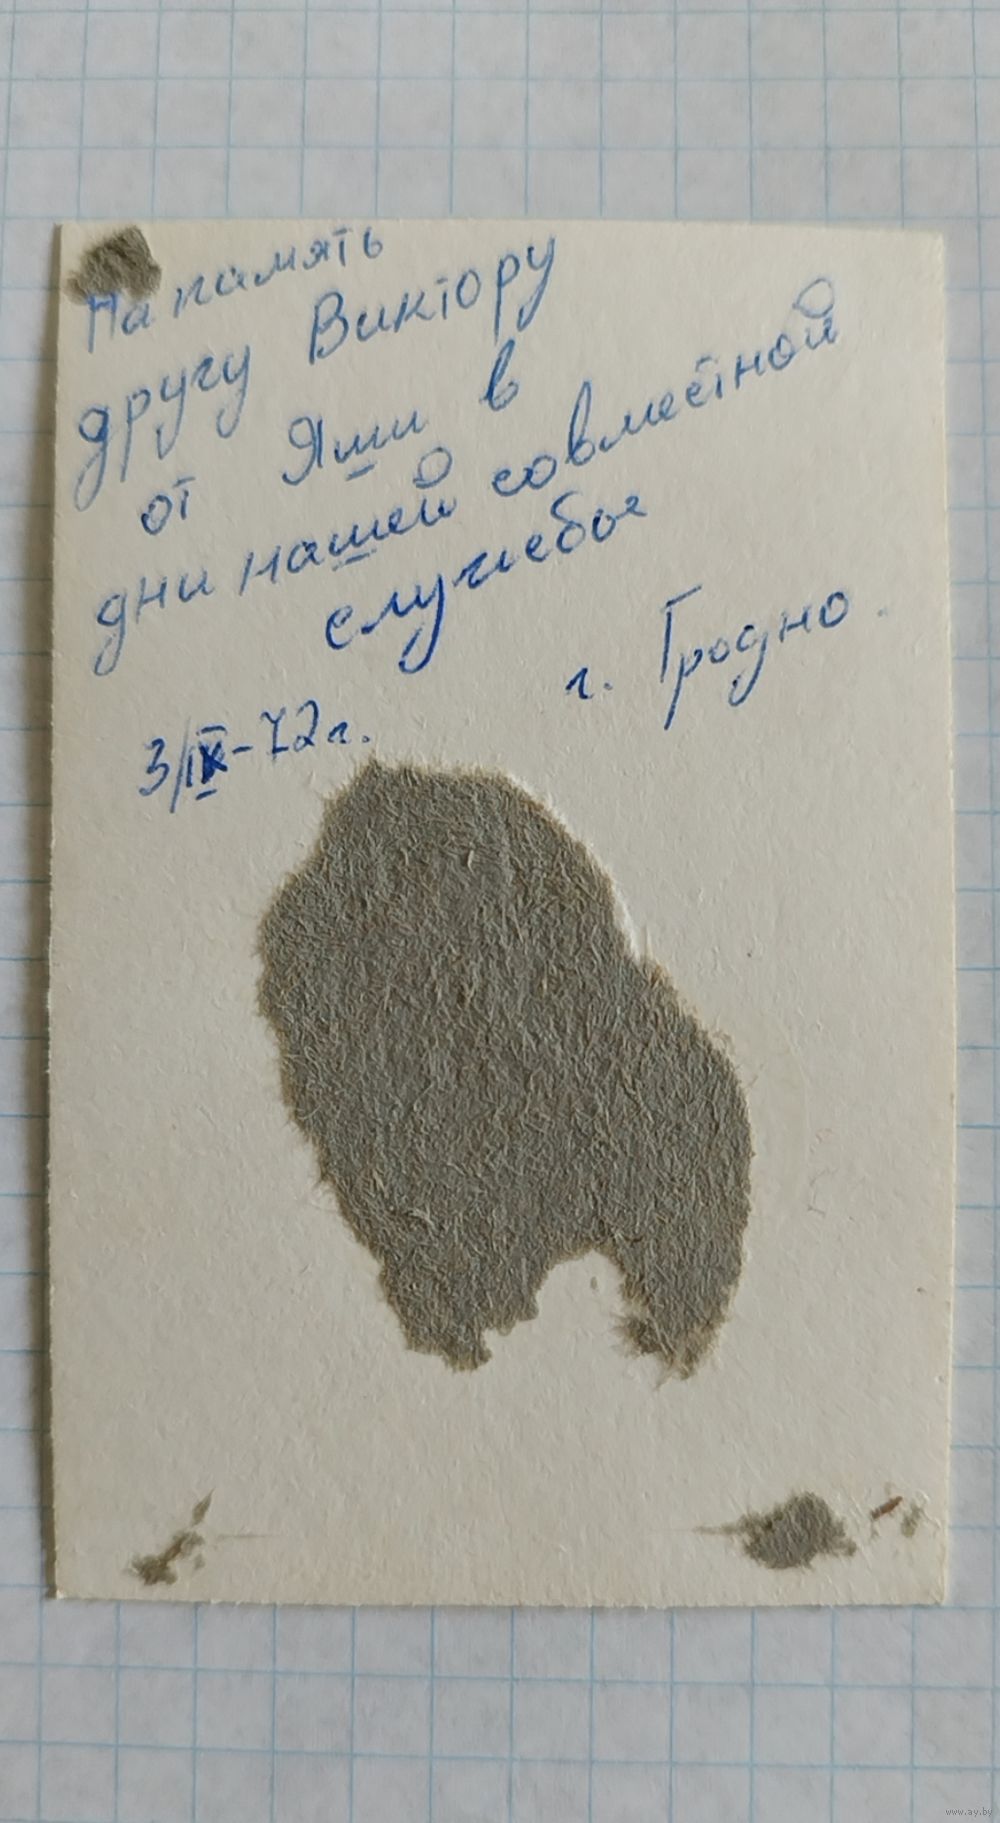 На память
другу Виктору
от Яши в
дни нашей совместной
службы
г. Гродно.
3/IX-72г.
www.ay.by